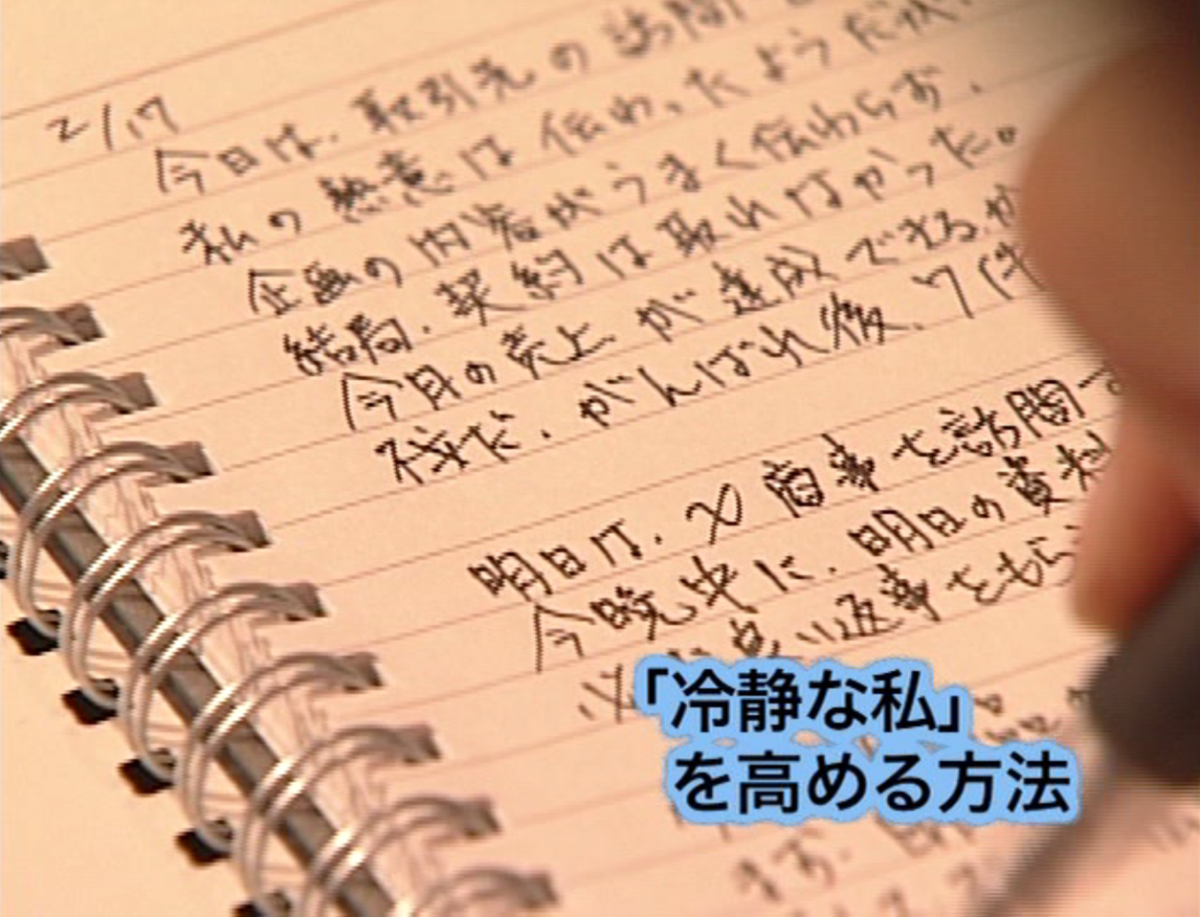 2/17
今日は、取引先の訪問
私の熱意は伝わったようだが、
企画の内容がうまく伝わらず、
結局、契約は取れなかった。
今月の売上が達成できるか
残だ、がんばれ俺、7件
明日は、〆商事を訪問す
今晩中に、明日の資料
い返事をもら
「冷静な私」
を高める方法
まず、